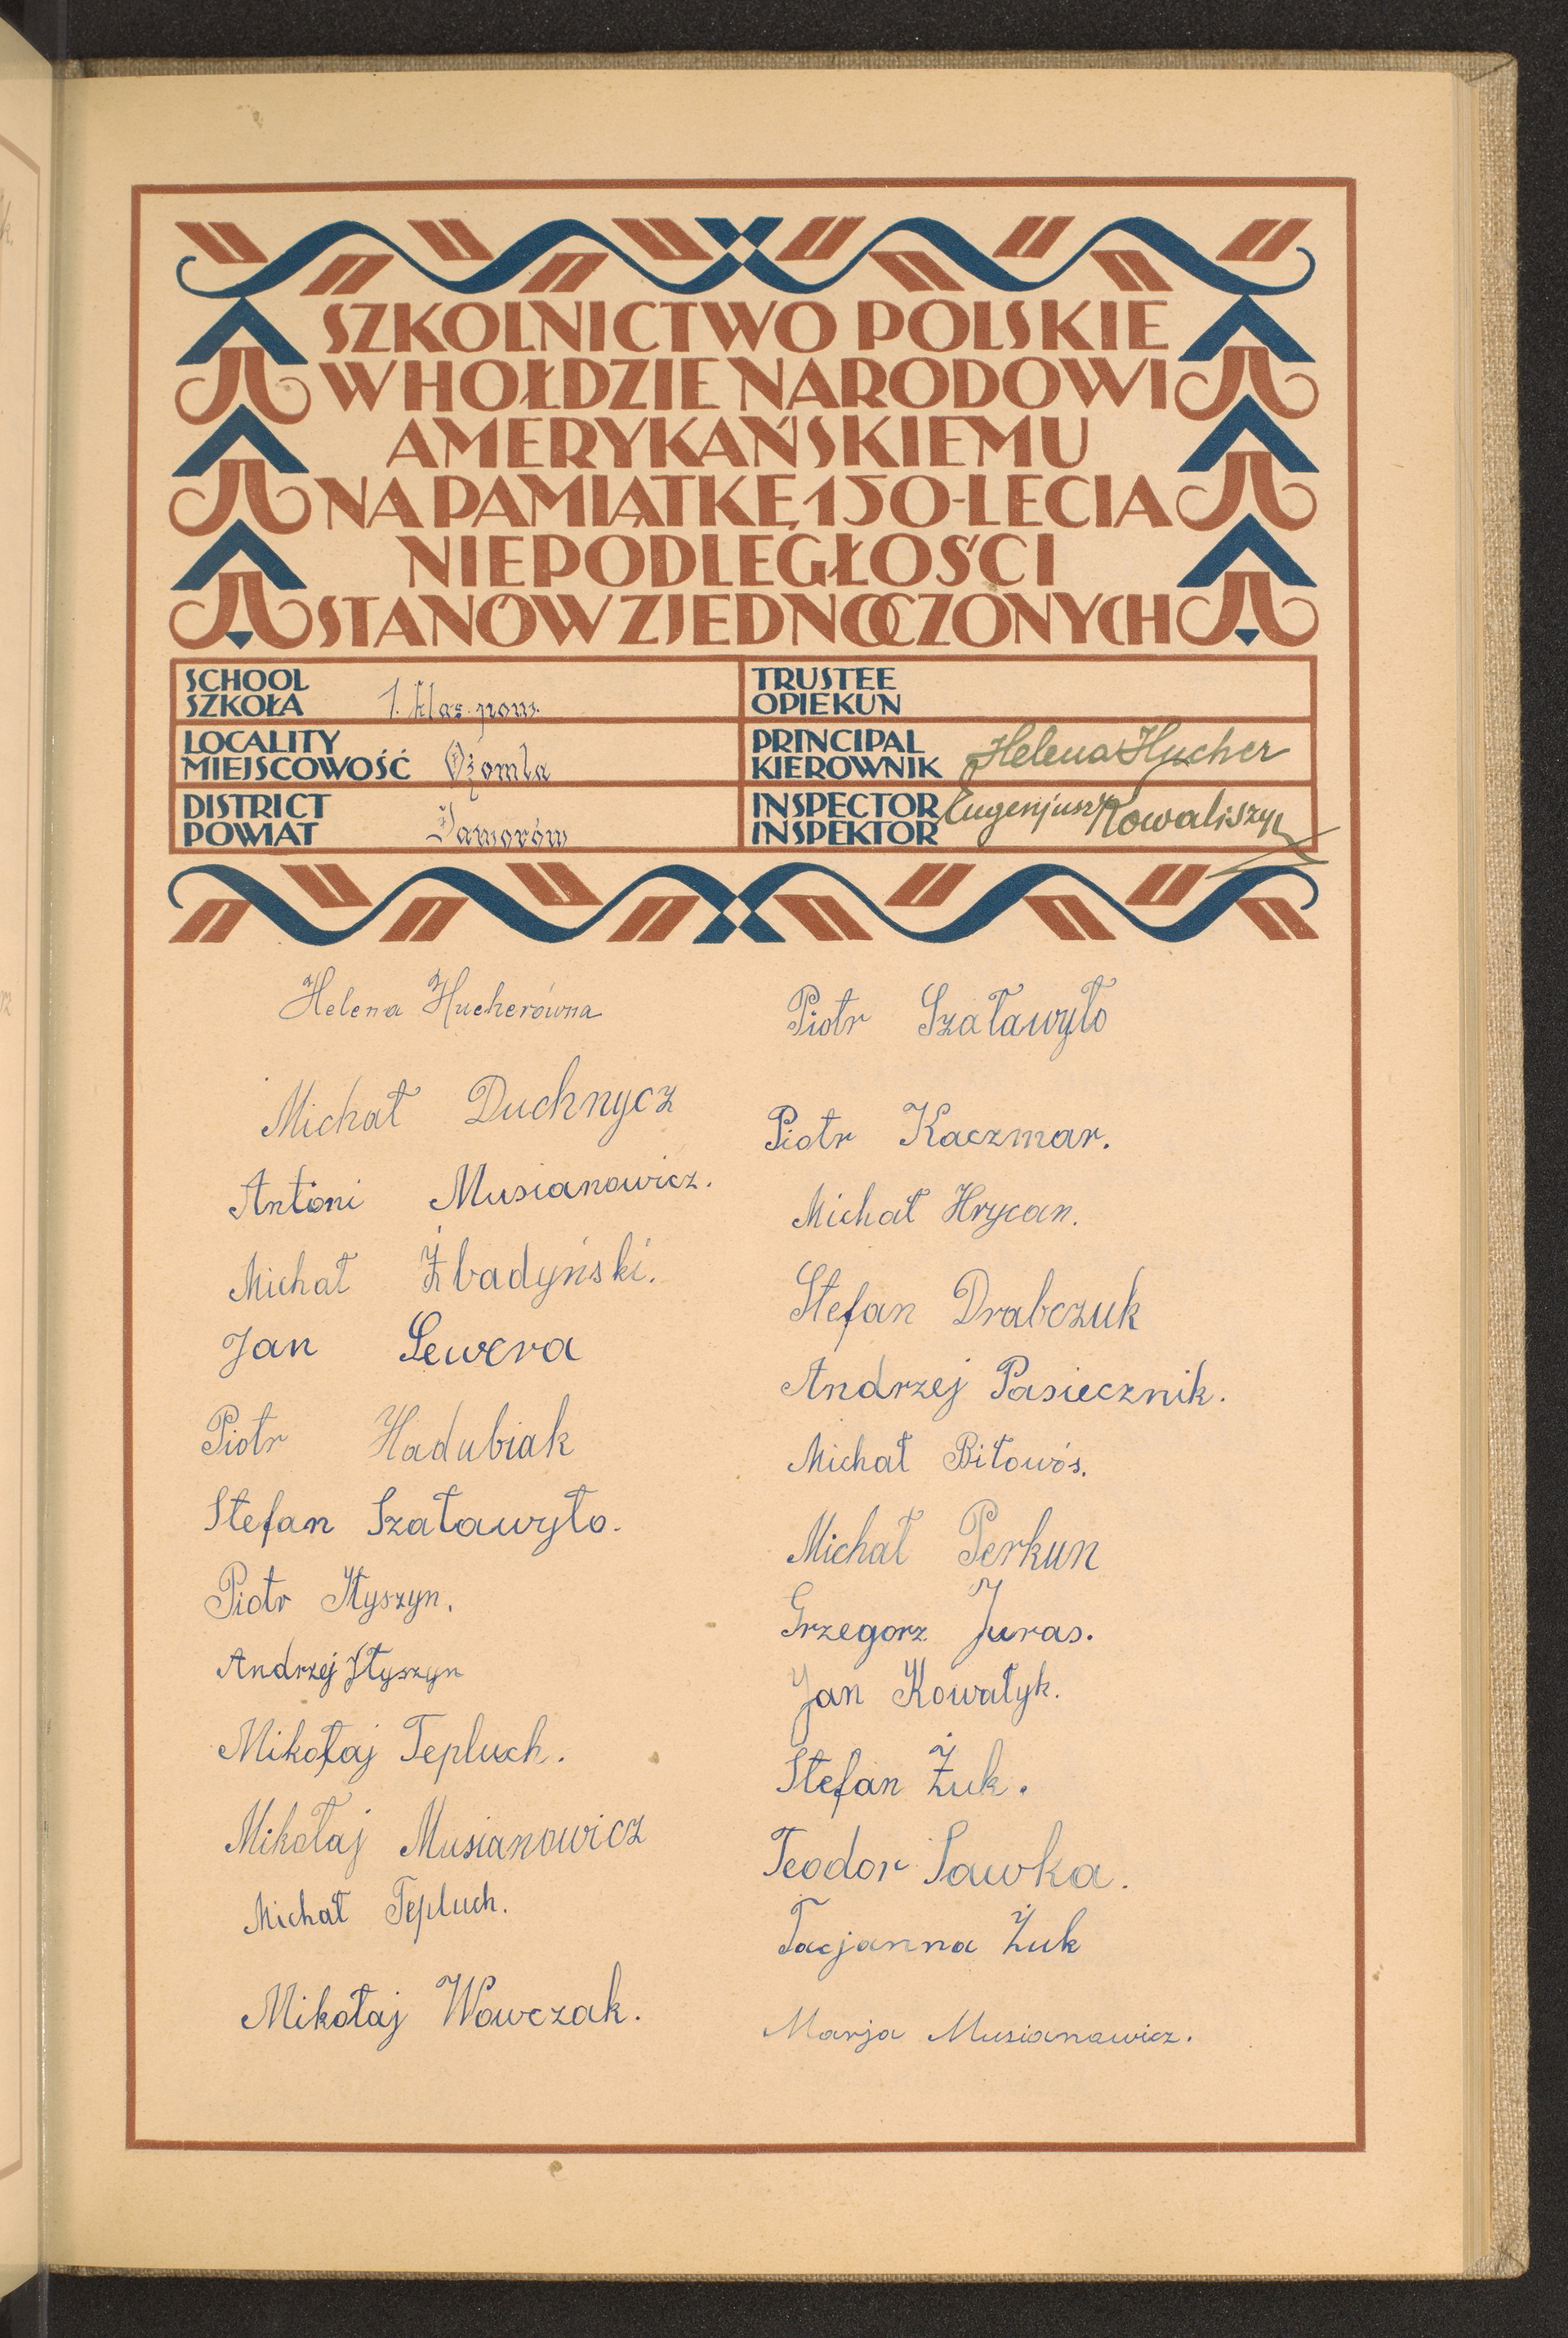 SZKOLNICTWO POLSKIE
W HOŁDZIE NARODOWI
AMERYKAŃSKIEMU
NA PAMIĄTKĘ 150-LECIA
NIEPODLEGŁOŚCI
STANÓW ZJEDNOCZONYCH
SCHOOL
SZKOŁA 1. klas. pow.
TRUSTEE
OPIEKUN
LOCALITY
MIEJSCOWOŚĆ Ożomla
PRINCIPAL
KIEROWNIK Helena Hucher
DISTRICT
POWIAT Jaworów
INSPECTOR
INSPEKTOR Eugenjusz Kowaliszyn
Helena Hucherówna
Michał Duchnycz
Antoni Musianowicz.
Michał Żbadyński.
Jan Sewera
Piotr Hadubiak
Stefan Szaławyło.
Piotr Hyszyn.
Andrzej Hyszyn
Mikołaj Tepluch.
Mikołaj Musianowicz
Michał Tepluch.
Mikołaj Wowczak.
Piotr Szaławyło
Piotr Kaczmar.
Michał Hrycan.
Stefan Drabczuk
Andrzej Pasiecznik.
Michał Biłowós.
Michał Perkun
Grzegorz Juras.
Jan Kowałyk.
Stefan Żuk.
Teodor Sawka.
Tacjanna Żuk
Marja Musianowicz.